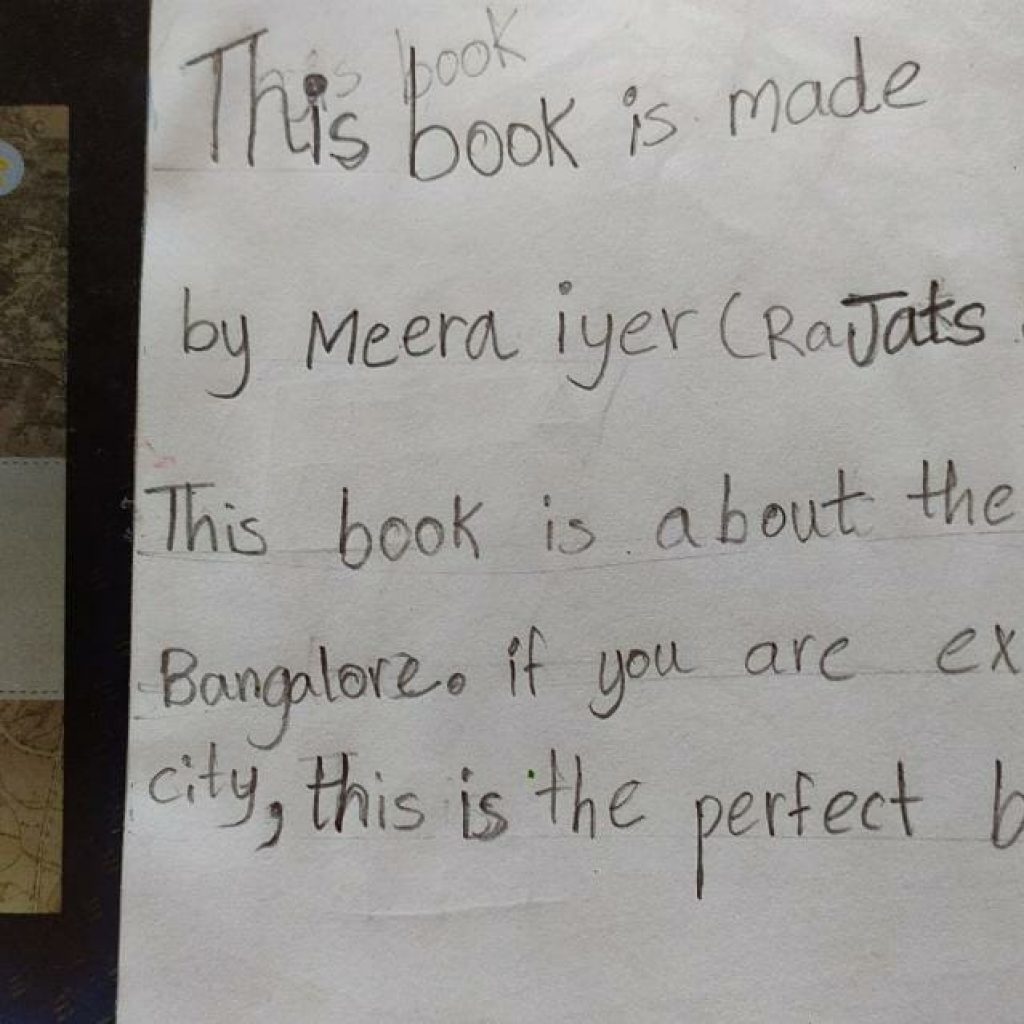 This book is made
by Meera iyer (RaJats
This book is about the
Bangalore. if you are ex
city, this is the perfect b